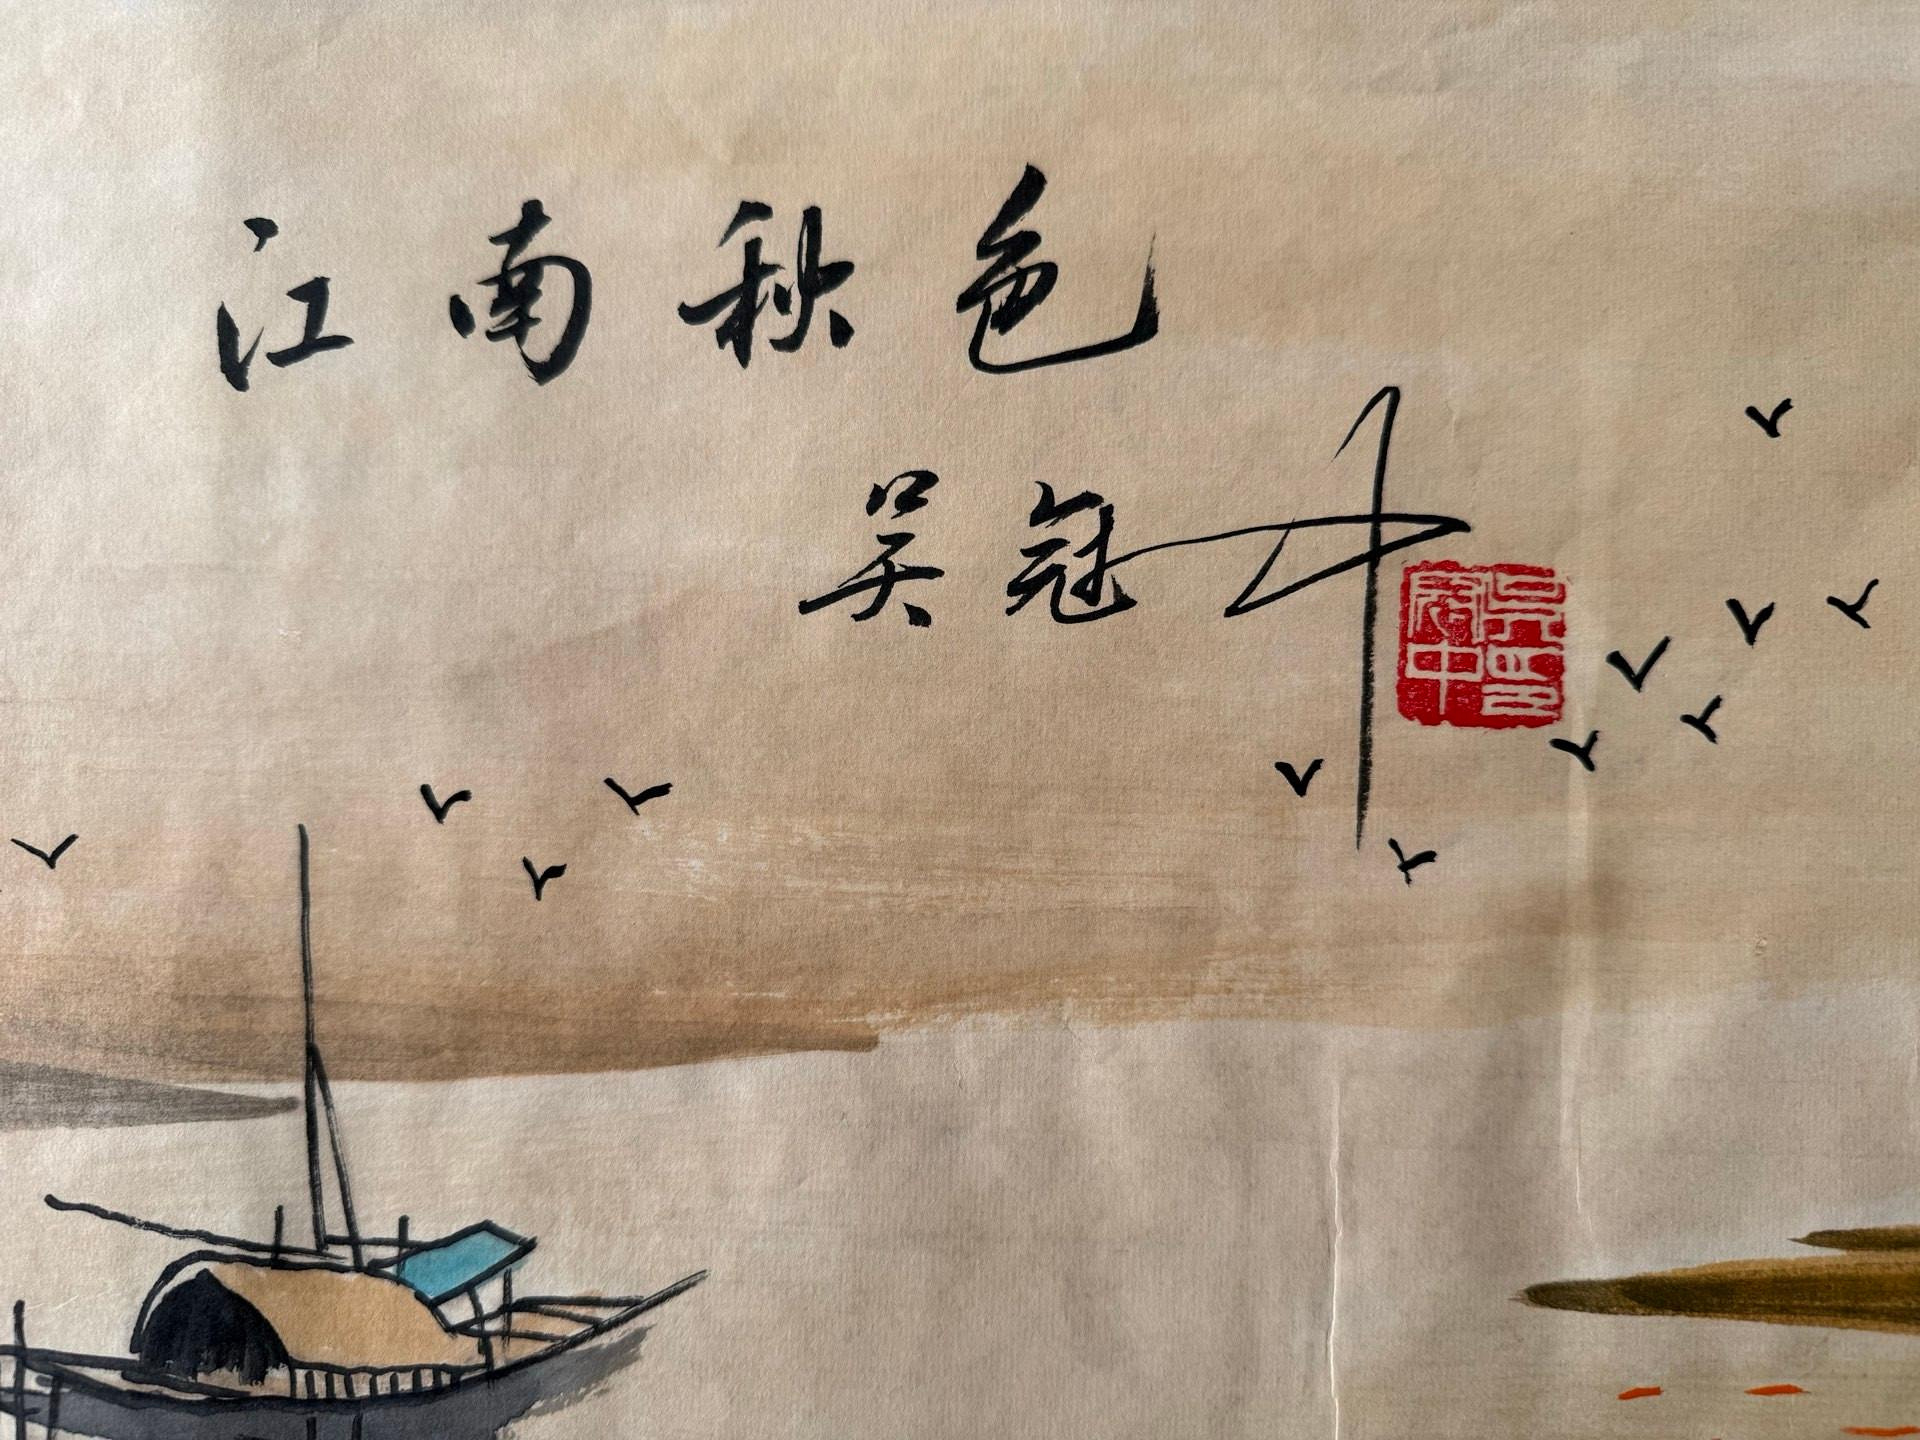 江南秋色
吴冠中
吴冠中印